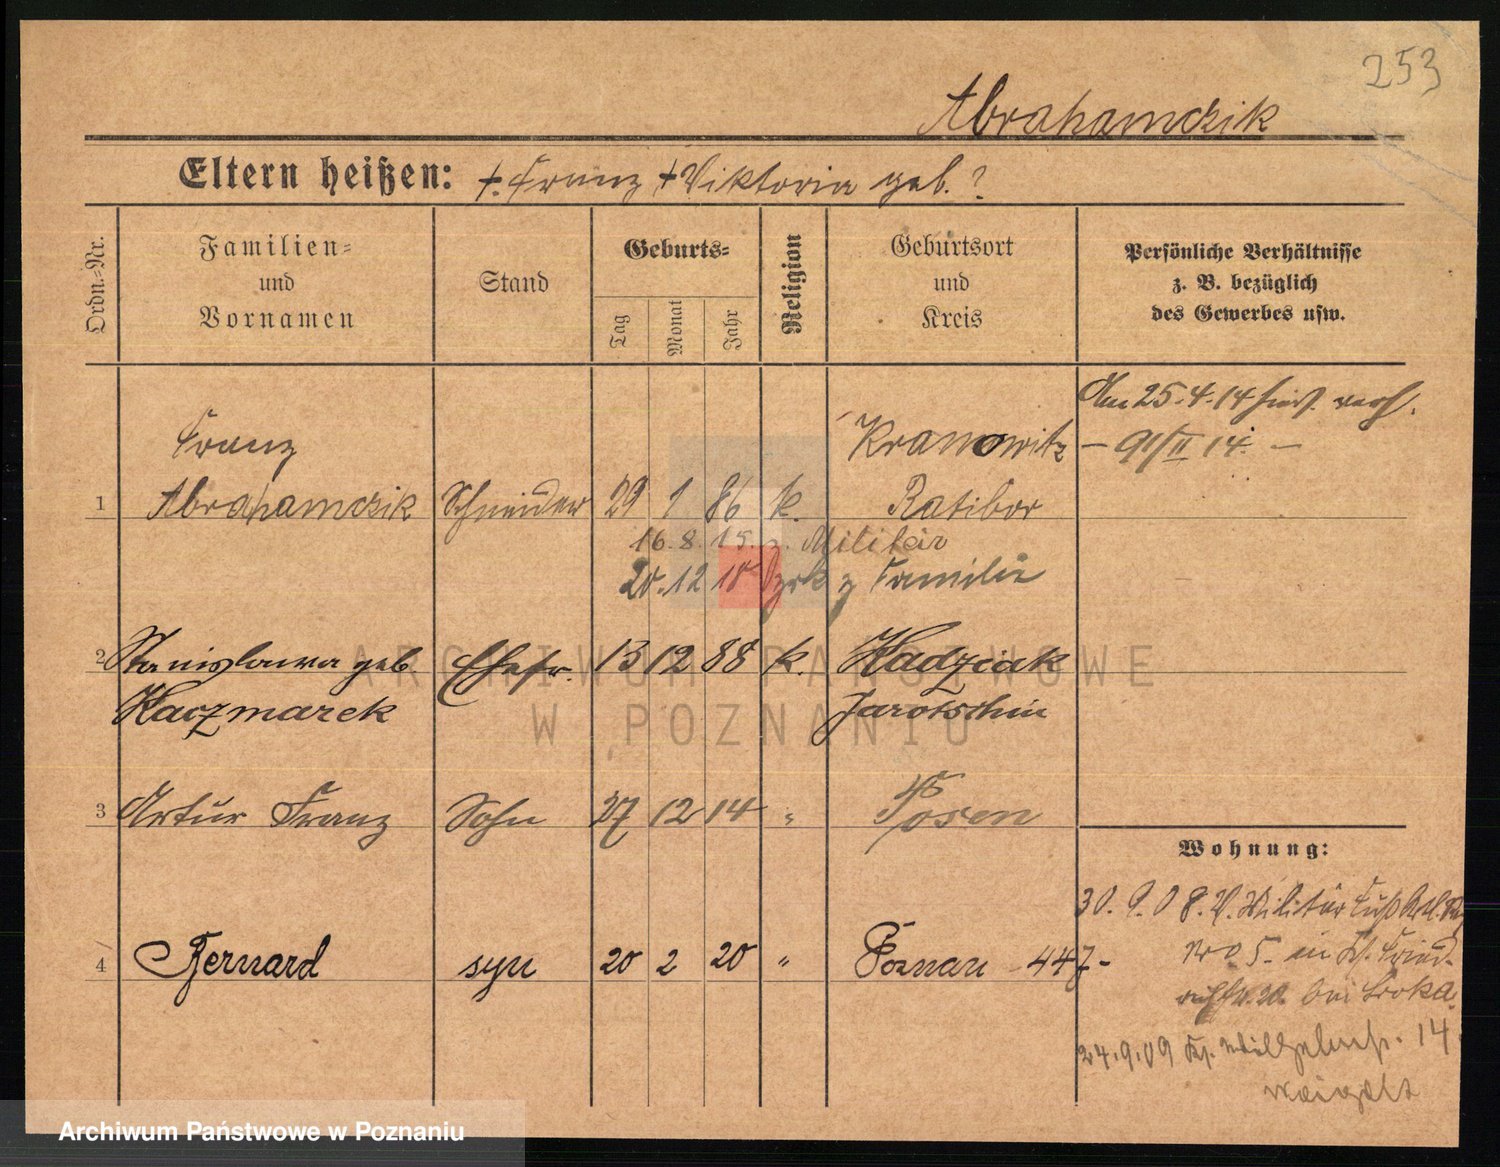 253
Abrahamczik
Eltern heißen: †. Franz †Viktoria geb. ?
Ordn.=Nr.
Familien=
und
Vornamen
Stand
Geburts=
Tag
Monat
Jahr
Religion
Geburtsort
und
Kreis
Persönliche Verhältnisse
z. B. bezüglich
des Gewerbes usw.
Am 25.4.14
Franz Kranowitz
– 91/II 14. –
1 Abrahamczik Schneider 29 1 86 k. Ratibor
16.8.15. z. Militär
20.12 18 z Familie
2 Stanislawa geb Ehefr. 13 12 88 k. Hadziak
Kaczmarek Jarotschin
3 Artur Franz Sohn 27 12 14 " Posen
Wohnung:
30. 9. 08. v. Militär
4 Bernard syn 20 2 20 " Poznań 447-
No 5. in
24.9.09 14
ARCHIWUM PAŃSTWOWE
W POZNANIU
Archiwum Państwowe w Poznaniu